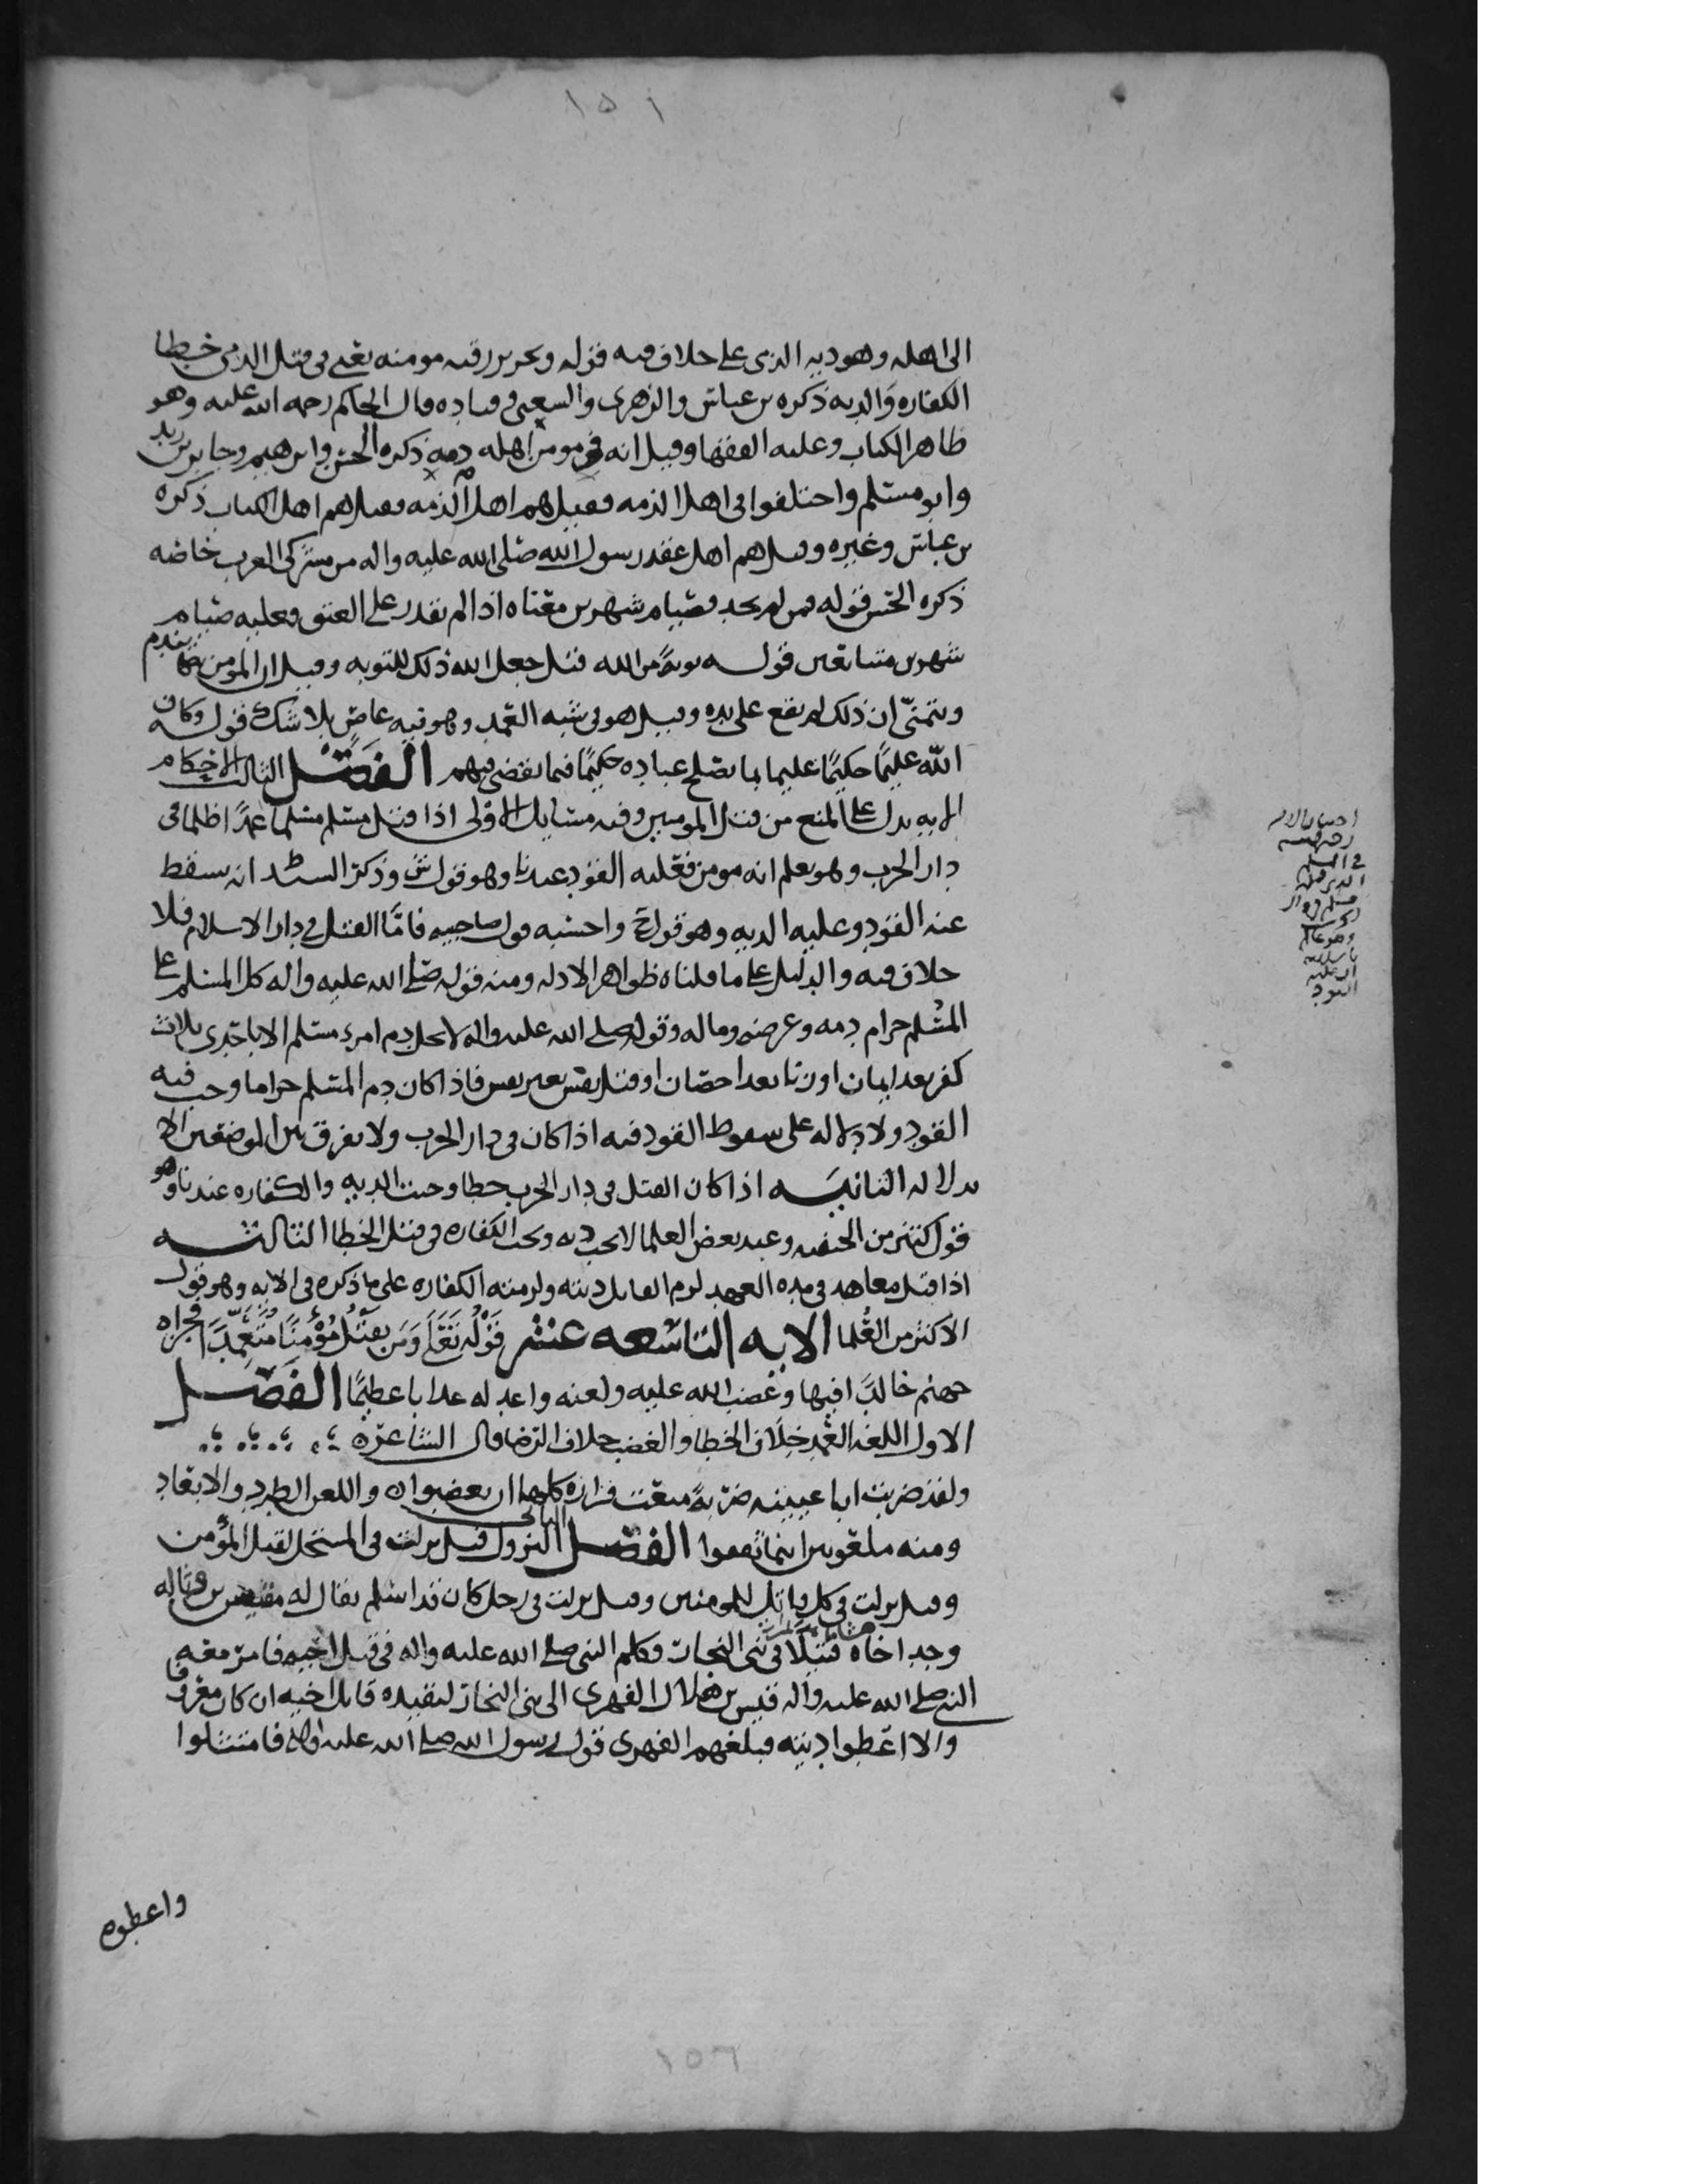 ١٥١
الى اهله وهو دية الذمي على خلاف فيه قوله وتحرير رقبه مومنه يعني في قتل الذمي خطا
الكفاره والديه ذكره بن عباس والزهري والشعبي وقتاده قال الحاكم رحمه الله عليه وهو
ظاهر الكتاب وعليه الفقها وقيل انه في مومن اهله ذمة ذكره الحسن وابرهيم وجابر بن زيد
وابو مسلم واختلفوا في اهل الذمه فقيل هم اهل الذمه وقيل هم اهل الكتاب ذكره
بن عباس وغيره وقيل هم اهل عقد رسول الله صلى الله عليه واله من مشركي العرب خاصه
ذكره الحسن قوله فمن لم يجد فصيام شهرين معناه اذا لم يقدر على العتق فعليه صيام
شهرين متتابعين قوله توبةً من الله قيل جعل الله ذلك للتوبه وقيل ان المومن يندم
ويتمنّى ان ذلك لم يقع على يده وقيل هو في شبه العمد وهو فيه عاصٍ بلا شك قوله وكان
الله عليمًا حكيمًا عليما بما يصلح عباده حكيمًا فيما يقضي فيهم الفصل الثالث الاحكام
الايه تدل على المنع من قتل المومنين وفيه مسايل الاولى اذا قتل مسلم مسلما عمدًا ظلما في
دار الحرب وهو يعلم انه مومن فعليه القود عندنا وهو قول ش وذكر السيد انه يسقط
عنه القود وعليه الديه وهو قول ح واحسبه قول صاحبيه فامّا القتل في دار الاسلام فلا
خلاف فيه والدليل على ما قلناه ظواهر الادله ومنه قوله صلى الله عليه واله كل المسلم على
المسلم حرام دمه وعرضه وماله وقوله صلى الله عليه واله لا يحل دم امرء مسلم الا باحدى ثلاث
كفر بعد ايمان او زنا بعد احصان او قتل نفس بغير نفس فاذا كان دم المسلم حراما وجب فيه
القود ولا دلاله على سقوط القود فيه اذا كان في دار الحرب ولا يفرق بين الموضعين الا
بدلاله الثانيه اذا كان القتل في دار الحرب خطا وجبت الديه والكفاره عندنا وهو
قول كثير من الحنفيه وعند بعض العلما لا يجب ديه ويجب الكفاره في قتل الخطا الثالثه
اذا قتل معاهد في مده العهد لزم القاتل ديته ولزمته الكفاره على ما ذكره في الايه وهو قول
الاكثر من العُلما الايه التاسعه عشر قَوْلُه تَعَالَى وَمَن يَقتُل مُؤْمِنًا مُتَعَمِّدًا فجزاه
جهنم خالدًا فيها وغضب الله عليه ولعنه واعد له عذابا عظيمًا الفصل
الاول اللغه العَمد خِلاف الخطا والغضب خلاف الرضا قال الشاعره
ولقد ضربت ابا عيينه ضربةً منعت فزاره كلها ان يغضبوا ه واللعن الطرد والابعاد
ومنه ملعونين اينما ثقفوا الفصل الثاني النزول قيل نزلت في المستحل لقتل المؤمن
وقيل نزلت في كل قاتل للمومنين وقيل نزلت في رجل كان قد اسلم يقال له مقيس بن
وجد اخاه قتيلًا في بني النجار فكلم النبي صلى الله عليه واله في قتل اخيه فامر معه
النبي صلى الله عليه واله قيس بن هلال الفهري الى بني النجار ليقيده قاتل اخيه ان كان معروفا
والا اعطوا ديته فبلغهم الفهري قول رسول الله صلى الله عليه واله فامتثلوا
واعطوه
في المسلم
وهو عالم
القود
١٥٦